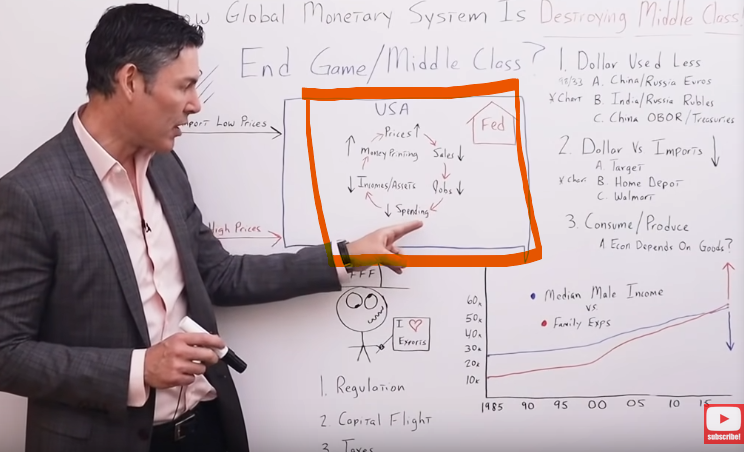 Global Monetary System Is Destroying Middle Class
End Game/Middle Class?
Import Low Prices
High Prices
USA
Fed
Prices ↑
Sales ↓
Jobs ↓
↓ Spending
↓ Incomes/Assets
↑ Money Printing
FFF
I ♡
Exports
1. Regulation
2. Capital Flight
3. Taxes
1. Dollar Used Less
A. China/Russia Euros
*Chart B. India/Russia Rubles
C. China OBOR/Treasuries
2. Dollar Vs Imports ↓
A Target
*Chart B. Home Depot
C. Walmart
3. Consume/Produce
A Econ Depends On Goods?
Median Male Income
vs.
Family Exps
60k
50k
40k
30k
20k
10k
1985 90 95 00 05 10 15
subscribe!